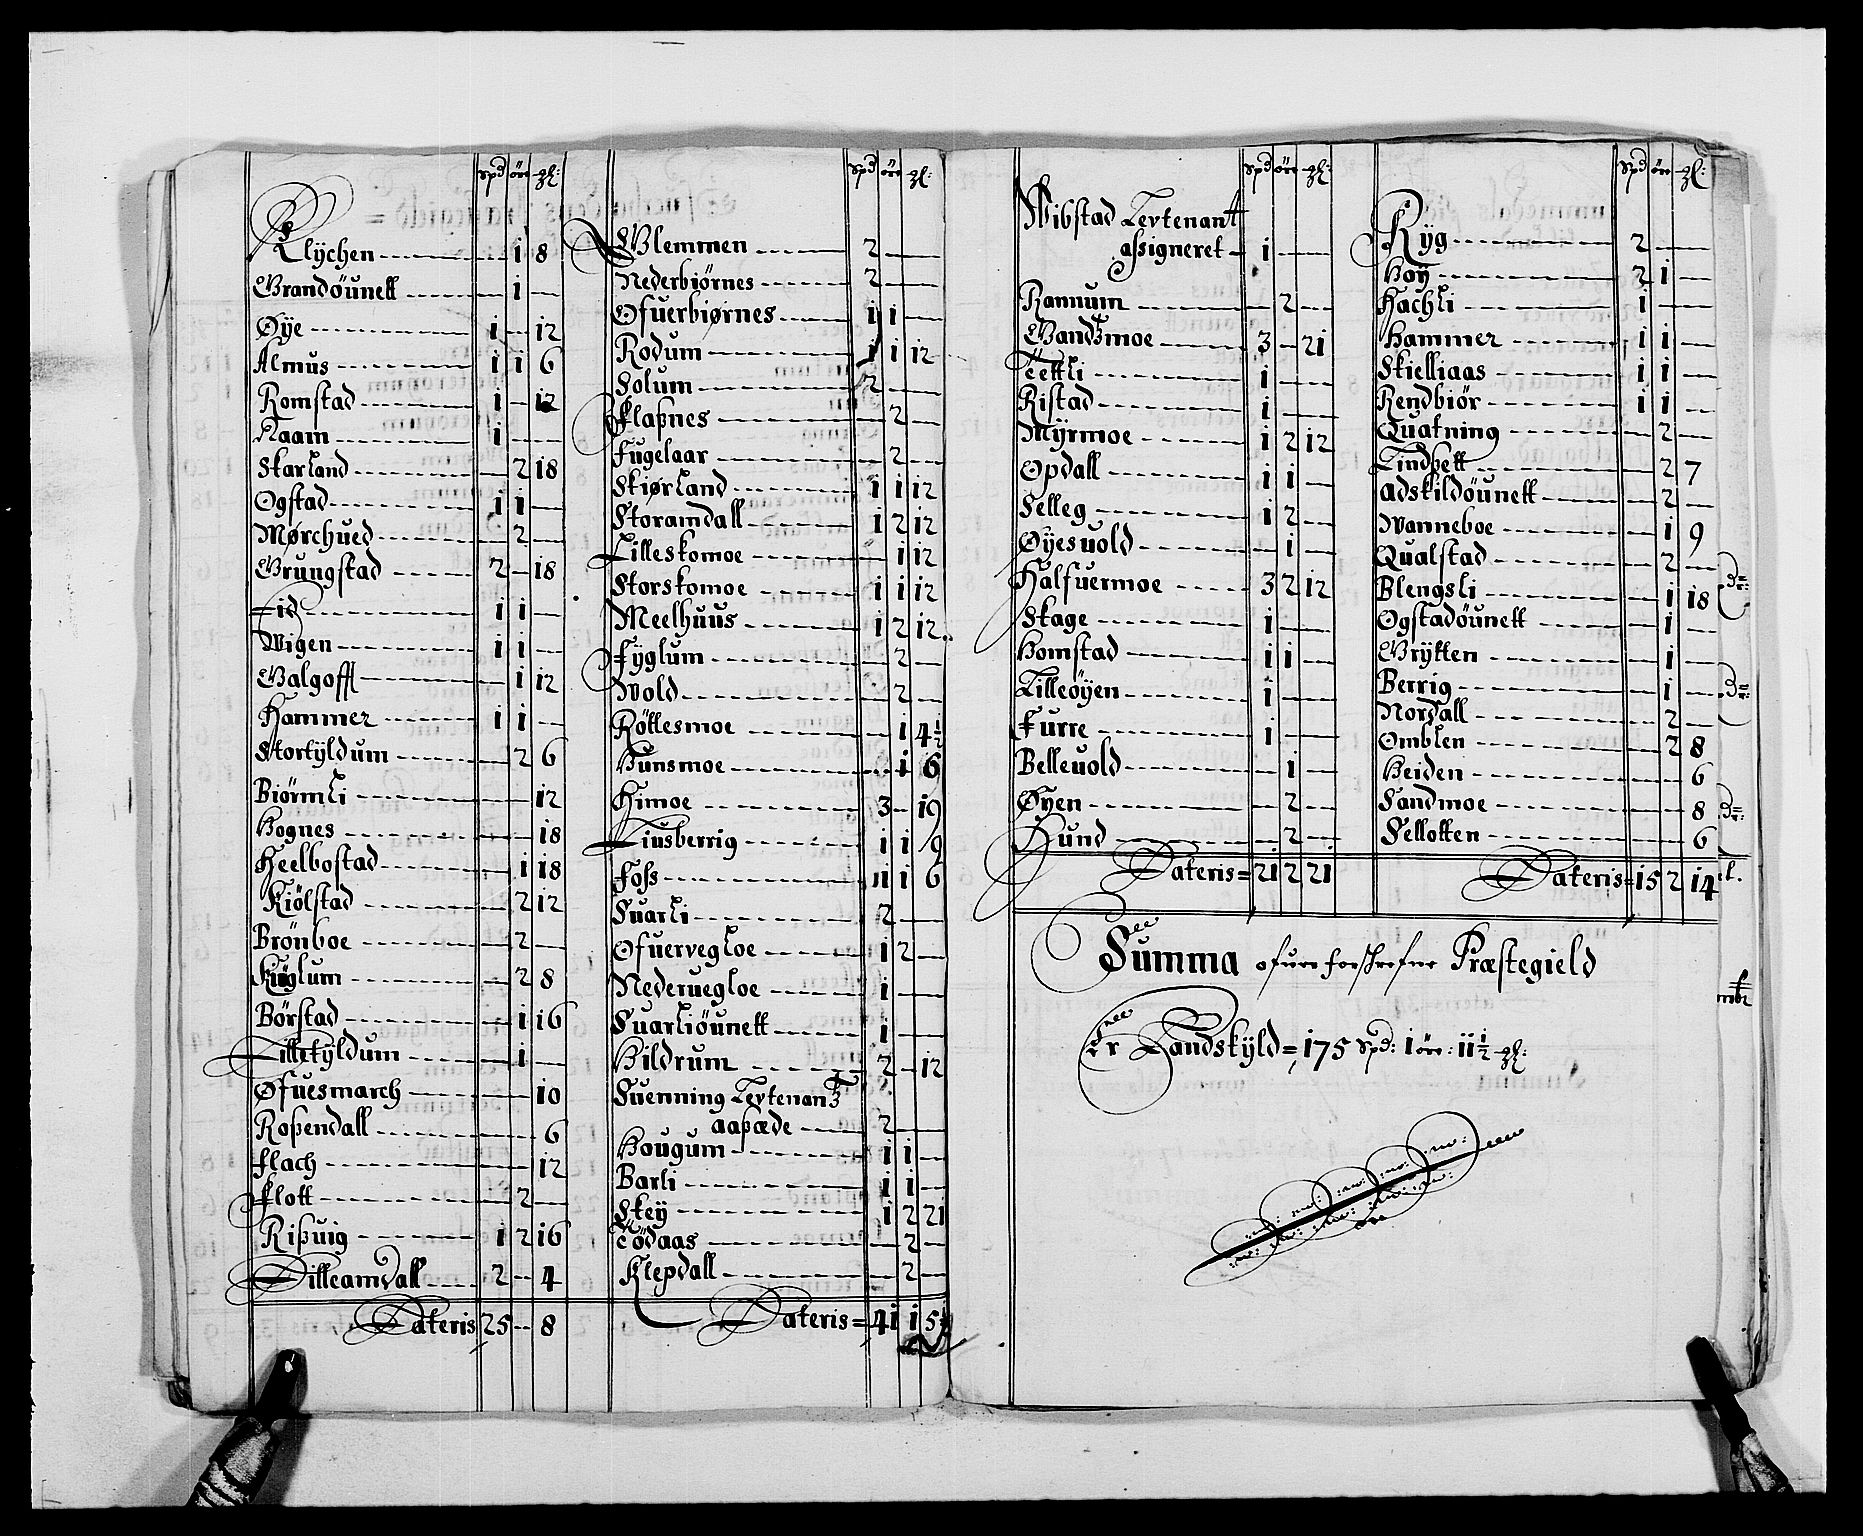 spd öre gl:
Klÿchen 1 8
Grandöunett 1
Øÿe 1 12
Almus 1 1 6
Romstad 1 12
Aaam 1
Skarland 2 18
Ogstad 1 1
Mørchued 2
Grungstad 2 18
Eid 1 1
Wigen 1 1
Galgofft 1 12
Hammer 1 1
Stortÿldum 2 6
Biörmli 12
Hognes 18
Heelbostad 1 18
Kiölstad 2 12
Brönboe 2
Kuglum 2 8
Börstad 1 16
Lilletÿldum 1
Øfuesmarch 10
Roßendall 6
Flach 12
Flott 2
Rißuig 1 2 16
Lilleamdall 2 4
Lateris 25 8
spd öre gl:
Glemmen 2
Nederbiørnes 2
Ofuerbiørnes 1 1
Rodum 1 1 12
Solum 2
Flaßnes 2
Fugelaar 2
Skiørland 1 1 12
Storamdall 1 2 12
Lilleskomoe 1 12
Storskomoe 1 1 12
Meelhuus 1 2 12
Fÿglum 2
Wold 2
Röttesmoe 1 4½
Hunsmoe 1 6
Himoe 3 19
Liusberrig 1 1 9
Foss 1 1 6
Suarli 2
Ofuervegloe 1 2
Nederuegloe 1
Suarliöunett 1
Hildrum 2 12
Suenning Levtenanz
aaßæde 2
Hougum 1 1
Barli 1 1
Skeÿ 1 2 21
Tödaas 2
Klepdall 2
Lateris = 41 1 5½
spd öre gl:
Wibstad Levtenant
assigneret 1
Rannum 2
Gandzmoe 3 21
Tettli 1
Ristad 1
Mÿrmoe 1 2 12
Opdall 1 1
Selleg 1 2
Øÿesuold 1
Halfuermoe 3 2 12
Skage 1
Homstad 1 1
Lilleöÿen 1
Furre 1
Belleuold 1
Øÿen 2
Hund 2
Lateris = 21 2 21
spd öre gl:
Rÿg 2
Hoÿ 2 1
Hachli 1
Hammer 1 1
Skielliaas 1 1
Rendbiör 1 1
Quatning 2
Lindsett 2 7
Adskildöunett 2
Wanneboe 1 9
Qualstad 2
Blengsli 1 18
Ogstadöunett 1
Grÿtten 1
Berrig 1
Nordall 2
Omblen 2 8
Heiden 6
Sandmoe 8
Sellotten 6
Lateris = 15 2 14
Summa ofuen forschrefne Præstegield
Er Landskÿld = 175 spd: 1 öre: 11½ gl: